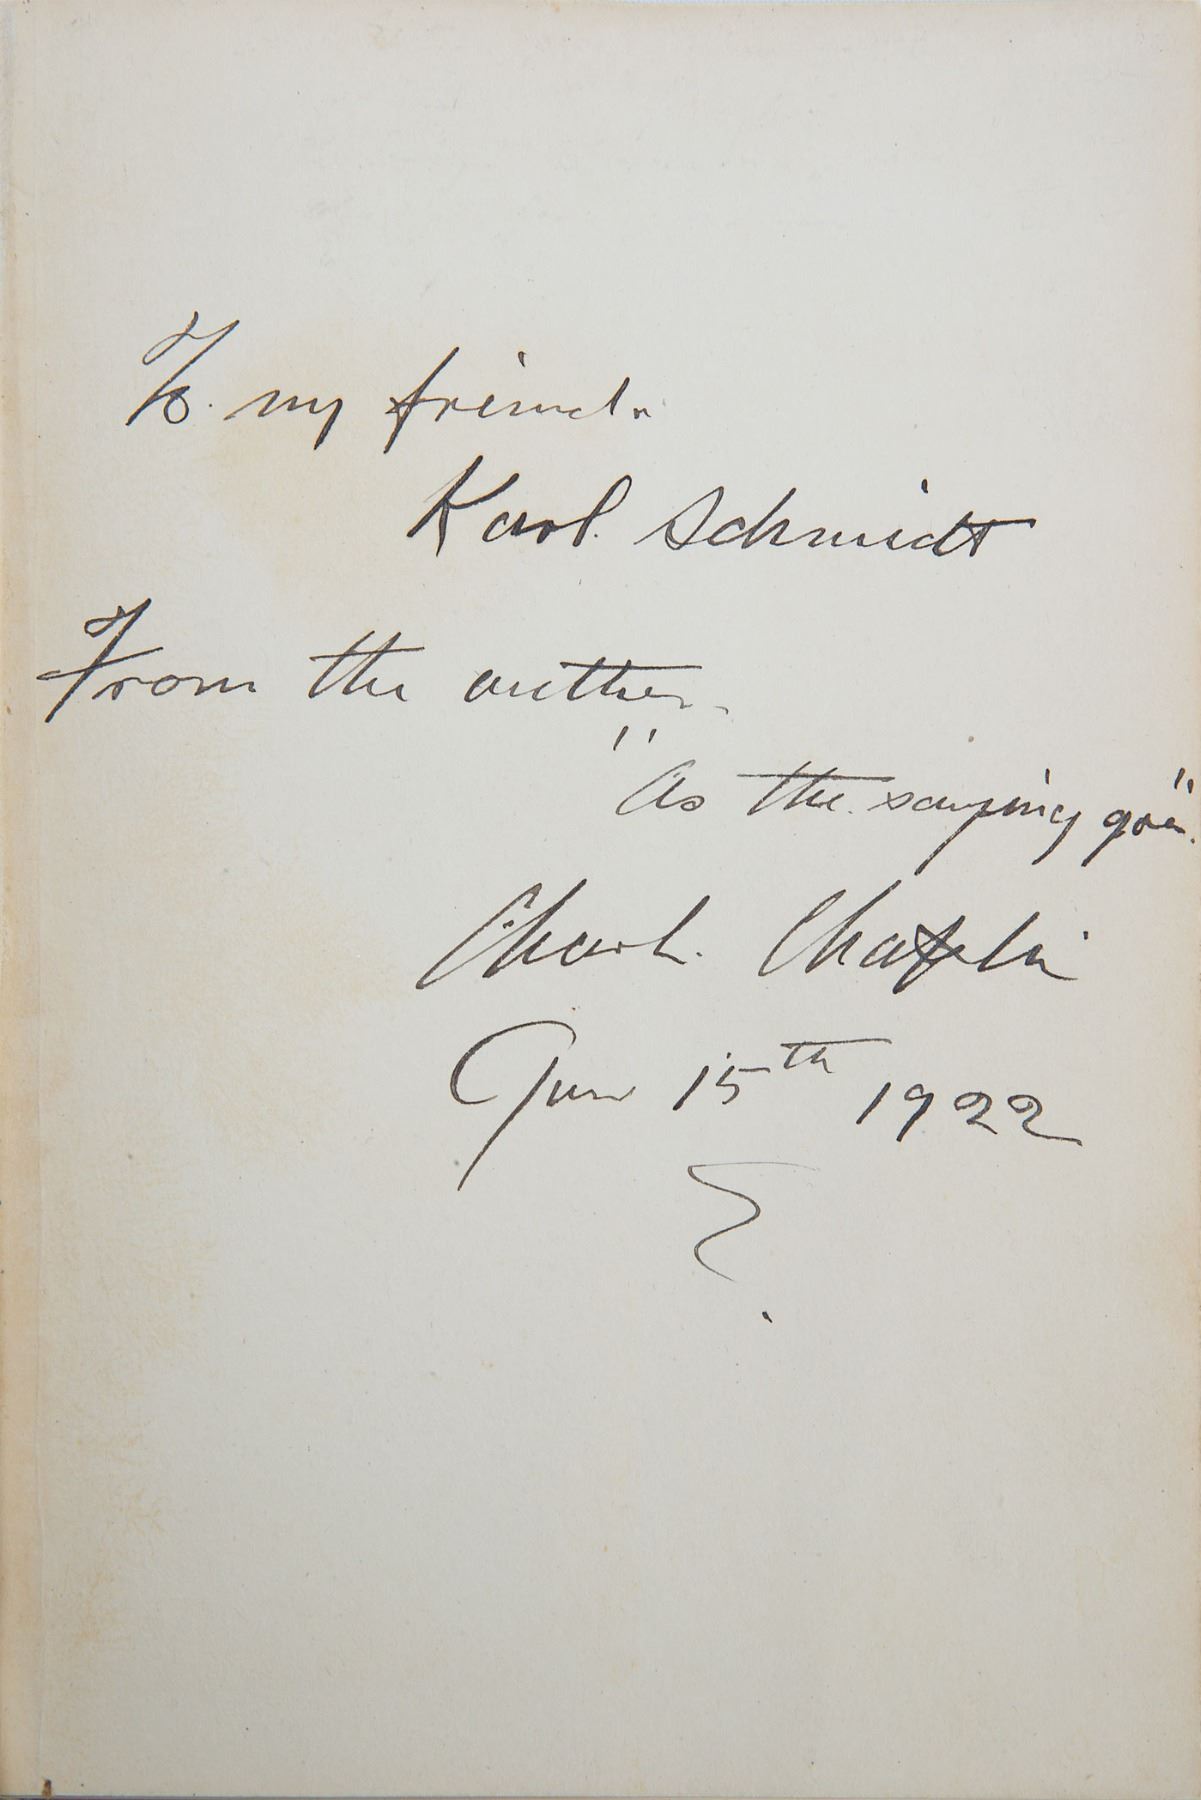 To my friend
Karl Schmidt
From the auther.
"As the saying goes."
Charl. Chaplin
Jun 15th 1922